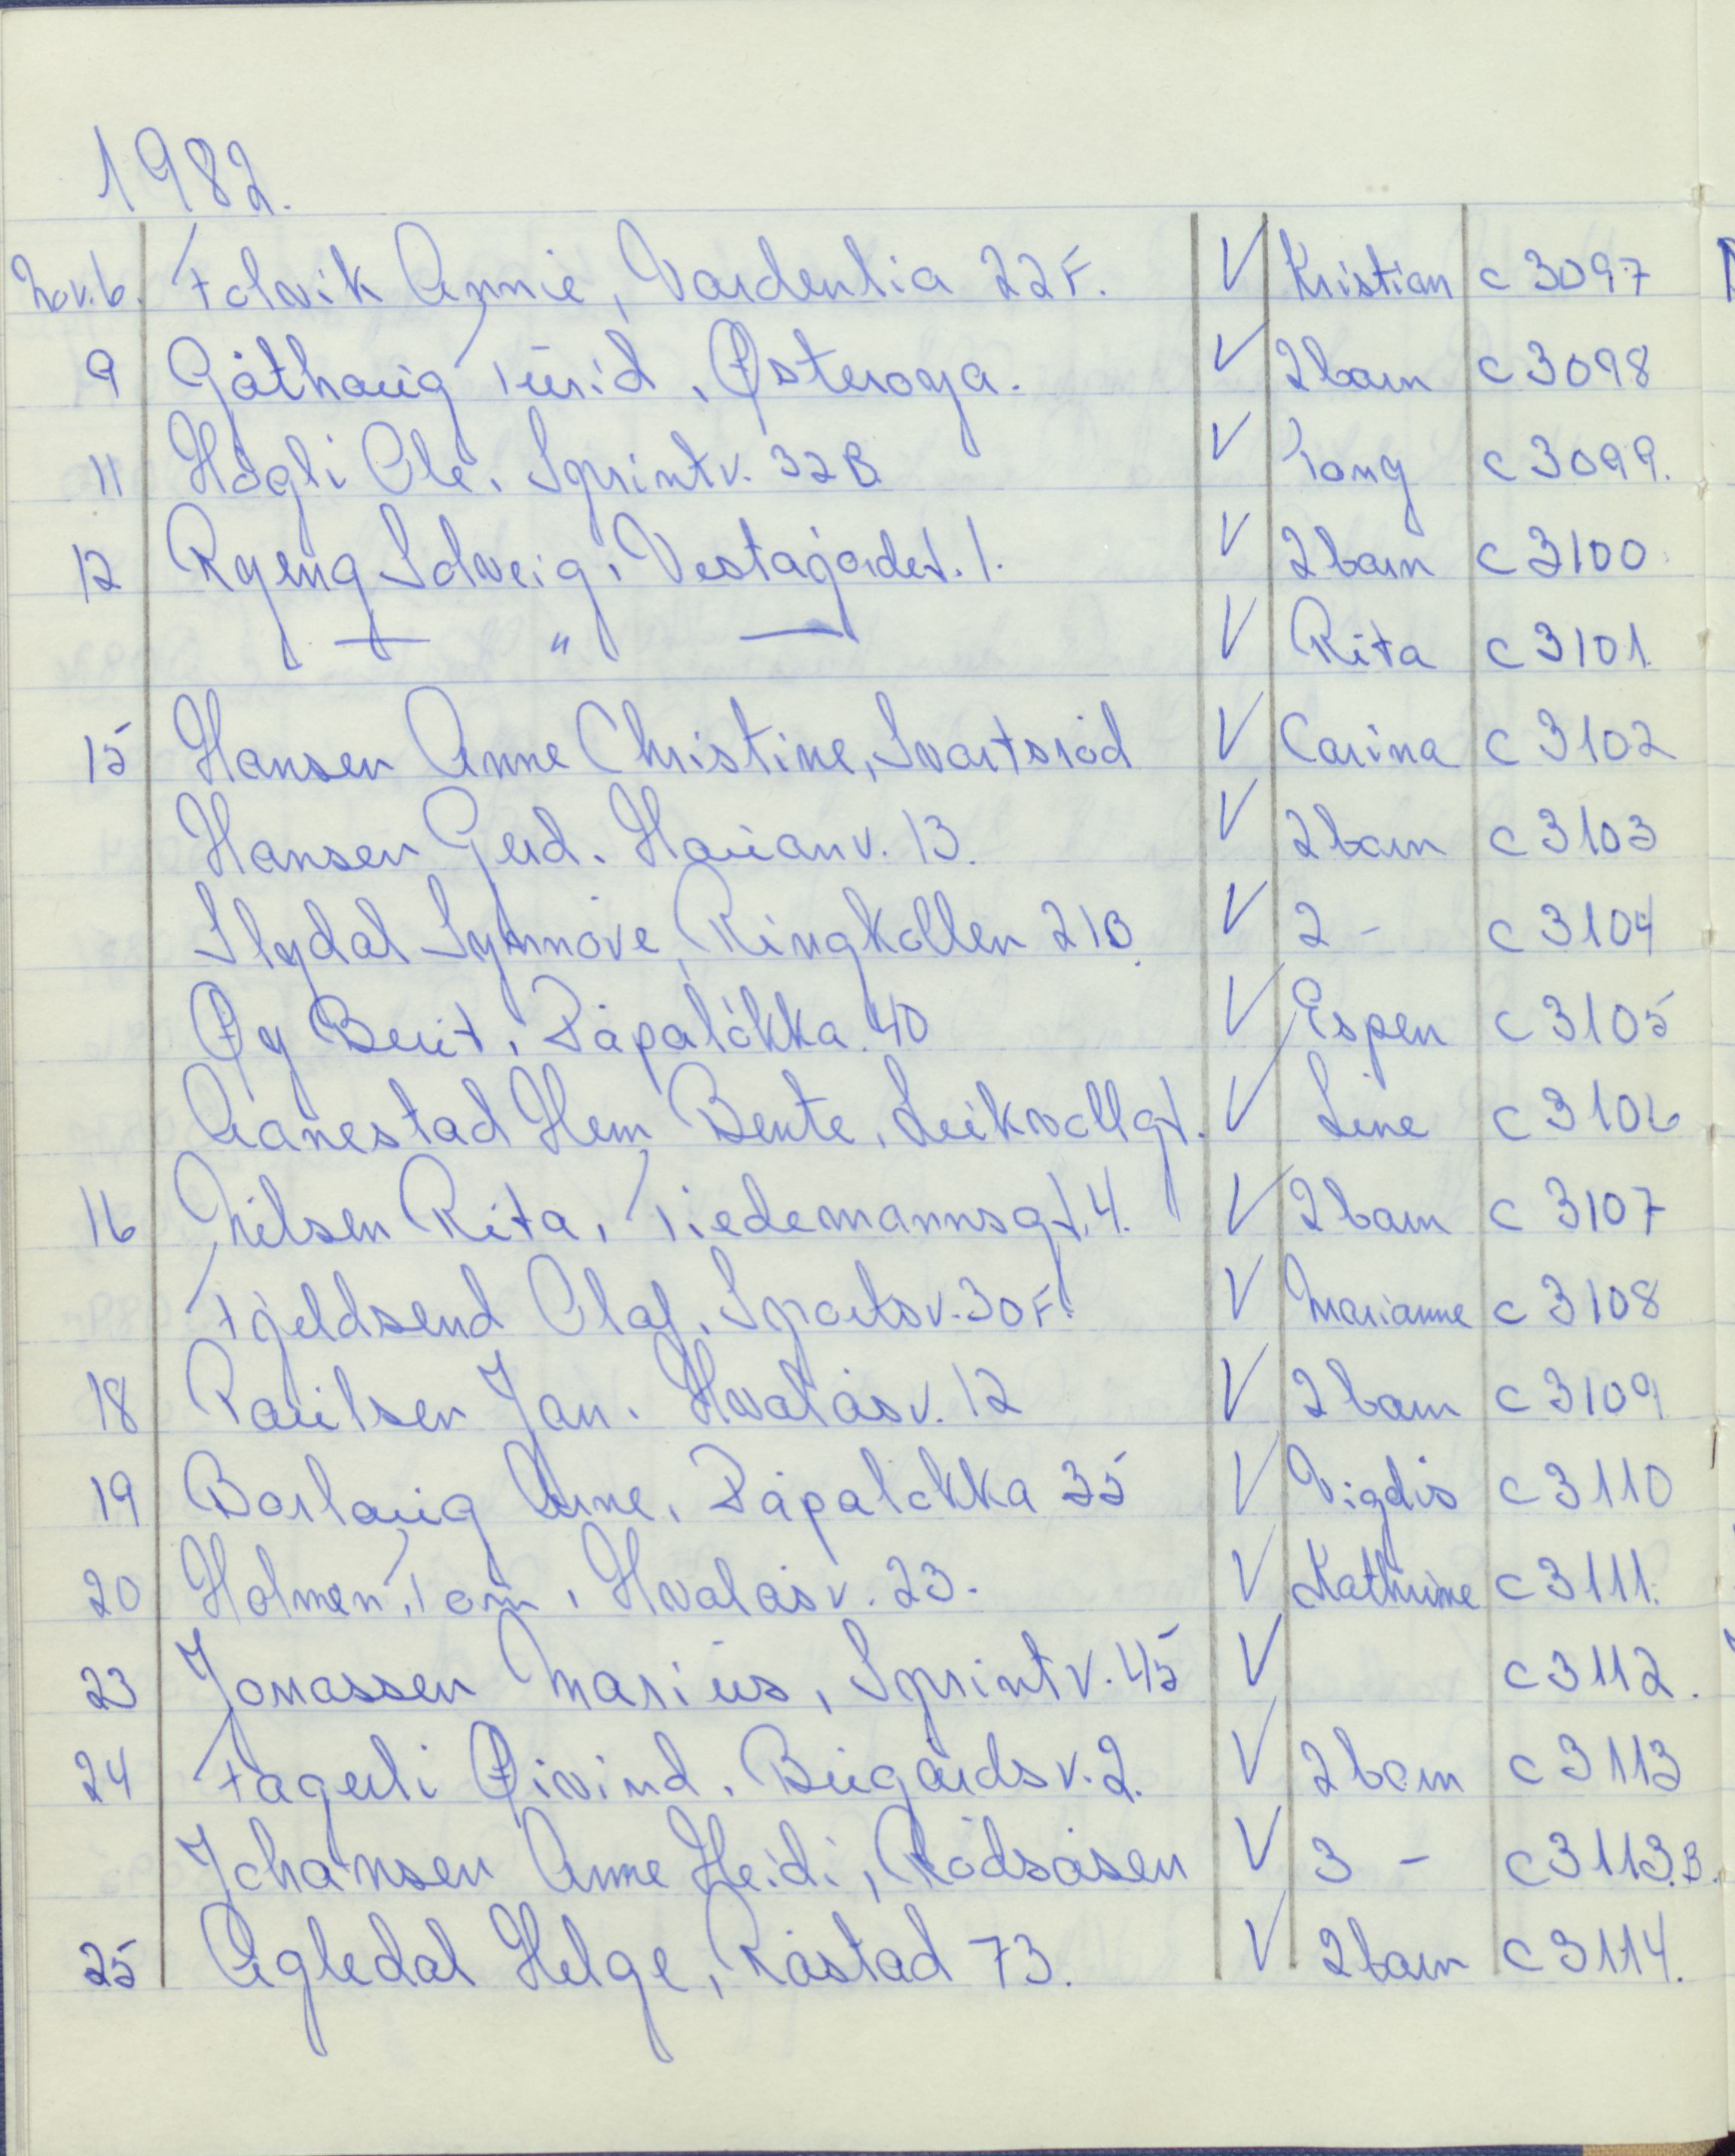 1982.
Nov. 6. Folvik Annie, Vardenlia 22F. V Kristian c 3097
9 Gåthaug Turid, Østerøya. V 2 barn c 3098
11 Høgli Ole, Sprintv. 32B V Tony c 3099.
12 Ryeng Solveig, Vestagjordet. 1. V 2 barn c 3100
— " — V Rita c 3101.
15 Hansen Anne Christine, Svartsrød V Carina c 3102
Hansen Gerd. Hauianv. 13. V 2 barn c 3103
Slydal Synnøve, Ringkollen 21B. V 2 - c 3104
Øy Berit, Påpaløkka. 40 V Espen c 3105
Aanestad Hem Bente, Leikvollgt. V Line c 3106
16 Nilsen Rita, Tiedemannsgt. 4. V 2 barn c 3107
Fjeldsend Olaf, Sportsv. 30F. V Marianne c 3108
18 Paulsen Jan. Hvalåsv. 12 V 2 barn c 3109
19 Borlaug Arne, Påpaløkka 35 V Vigdis c 3110
20 Holmen, Tom, Hvalåsv. 23. V Kathrine c 3111.
23 Jonassen Marius, Sprintv. 45 V c 3112.
24 Fagerli Øivind. Bugårdsv. 2. V 2 barn c 3113
Johansen Anne Heidi, Rødsåsen V 3 - c 3113.B.
25 Agledal Helge, Råstad 73. V 2 barn c 3114.